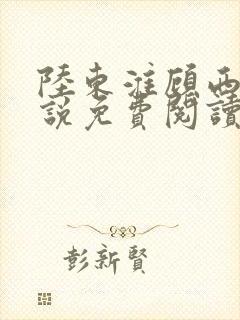 陸東淮顧西
說免費閱讀
彭新賢